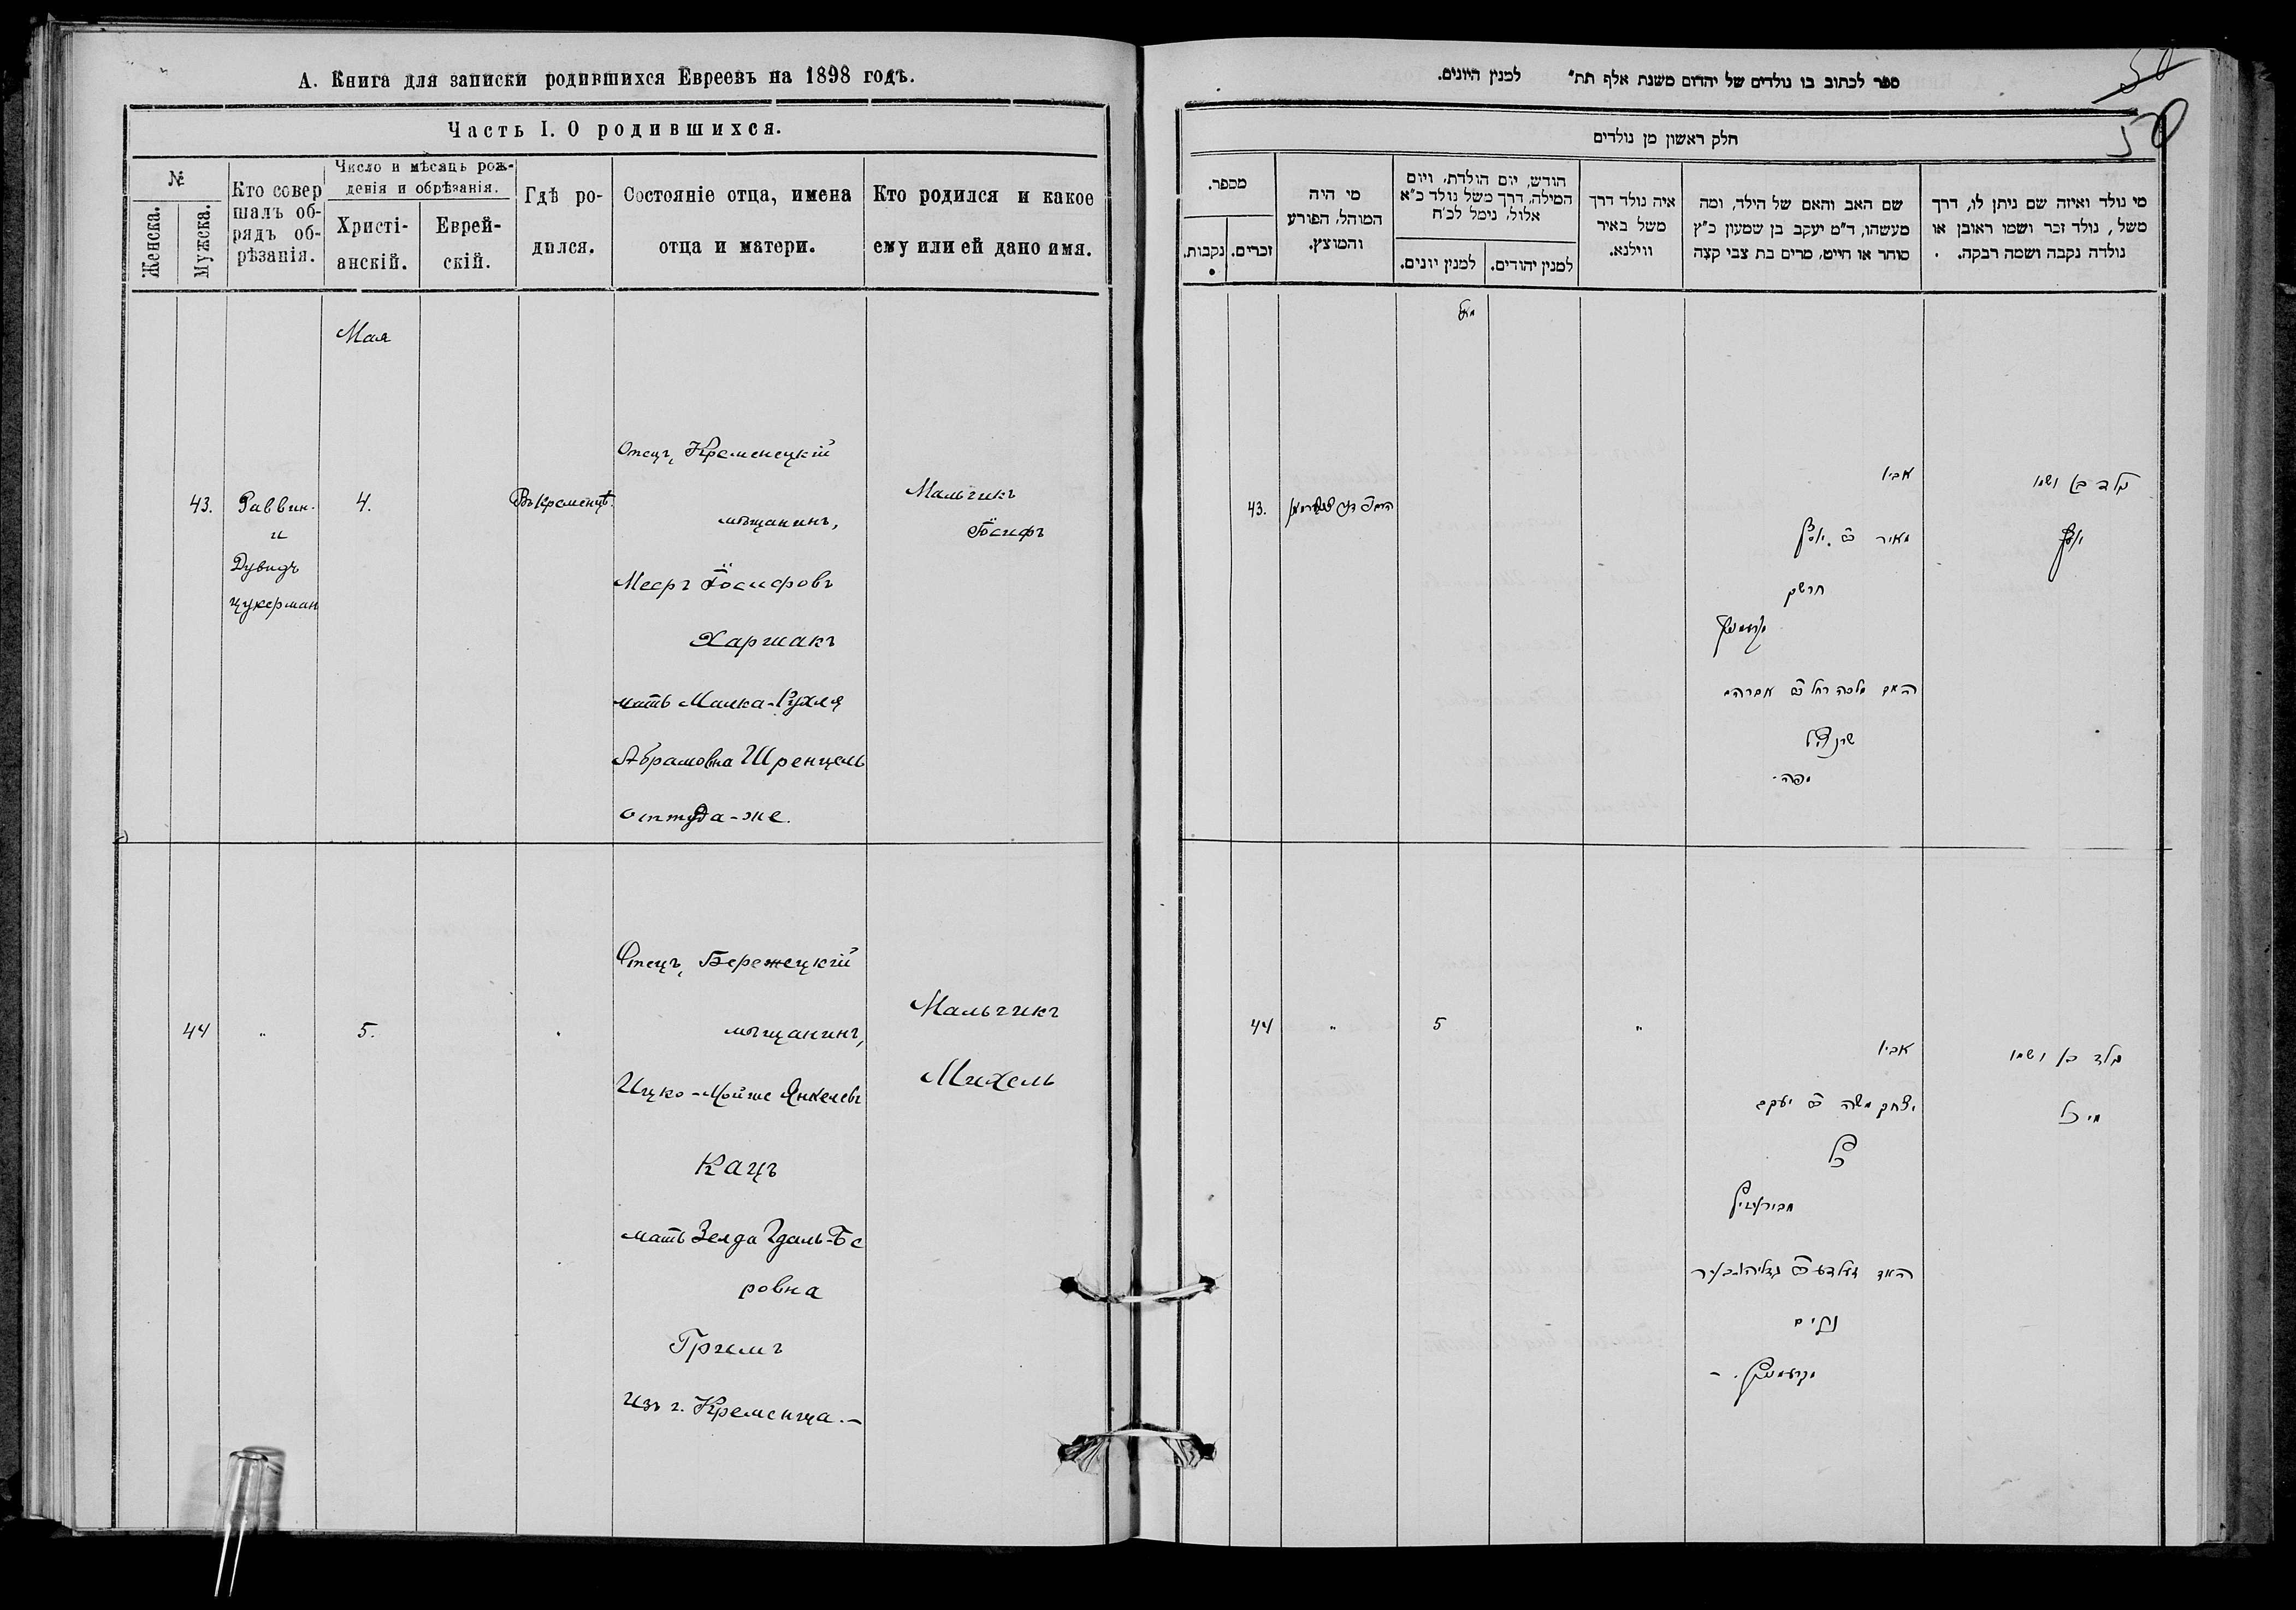 А. Книга для записки родившихся Евреевъ на 1898 годъ.
Часть I. О родившихся.
№
Женска.
Мужска.
Кто совер
шалъ об-
рядъ об-
рѣзанія.
Число и мѣсяцъ рож-
денія и обрѣзанія.
Христі-
анскій.
Еврей-
скій.
Гдѣ ро-
дился.
Состояніе отца, имена
отца и матери.
Кто родился и какое
ему или ей дано имя.
Мая
43.
Раввин.
и
Дувидъ
Цукерман
4.
Въ Кременцѣ
Отецъ, Кременецкій
мѣщанинъ,
Мееръ Іосифовъ
Харшакъ
мать Малка-Рухля
Абрамовна Шренцель
оттуда-же.
Мальчикъ
Іосифъ
44
"
5.
"
Отецъ, Бережецкій
мѣщанинъ,
Ицко-Мойше Янкелевъ
Кацъ
мать Зелда Гдаль-Бе
ровна
Гримъ
Изъ г. Кременца.-
Мальчикъ
Михель
50
50
ספר לכתוב בו נולדים של יהדום משנת אלף תת״ למנין היונים.
חלק ראשון מן נולדים
מספר.
נקבות.
זכרים.
מי היה
המוהל, הפורע
והמוצץ.
חודש, יום הולדת, ויום
המילה, דרך משל נולד כ״א
אלול, נימל לכ״ח
למנין יונים.
למנין יהודים.
איה נולד דרך
משל באיר
ווילנא.
שם האב והאם של הילד, ומה
מעשהו, ד״מ יעקב בן שמעון כ״ץ
סוחר או חייט, מרים בת צבי קצה
מי נולד ואיזה שם ניתן לו, דרך
משל, נולד זכר ושמו ראובן או
נולדה נקבה ושמה רבקה.
מאי
43.
אביו
מאיר ב״ר יוסף
חרשק
האם מלכה רחל ב״ר אברהם
מפה.
נולד בן ושמו
יוסף
44
"
5
"
אביו
יצחק משה ב״ר יעקב
כ״ץ
נולד בן ושמו
מיכל